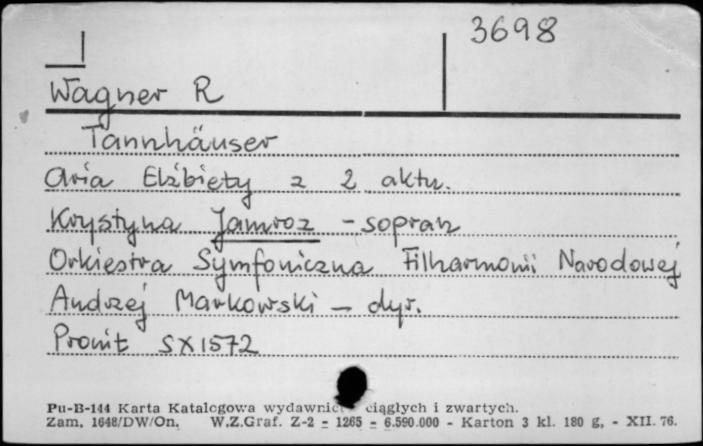 3698
Wagner R
Tannhäuser
Aria Elżbiety z 2 aktu.
Krystyna Jamroz - sopran
Orkiestra Symfoniczna Filharmonii Narodowej
Andrzej Markowski - dyr.
Pronit SX1572
Pu-B-144 Karta Katalogowa wydawnict ciągłych i zwartych.
Zam. 1648/DW/On. W.Z.Graf. Z-2 - 1265 - 6.590.000 - Karton 3 kl. 180 g, - XII. 76.